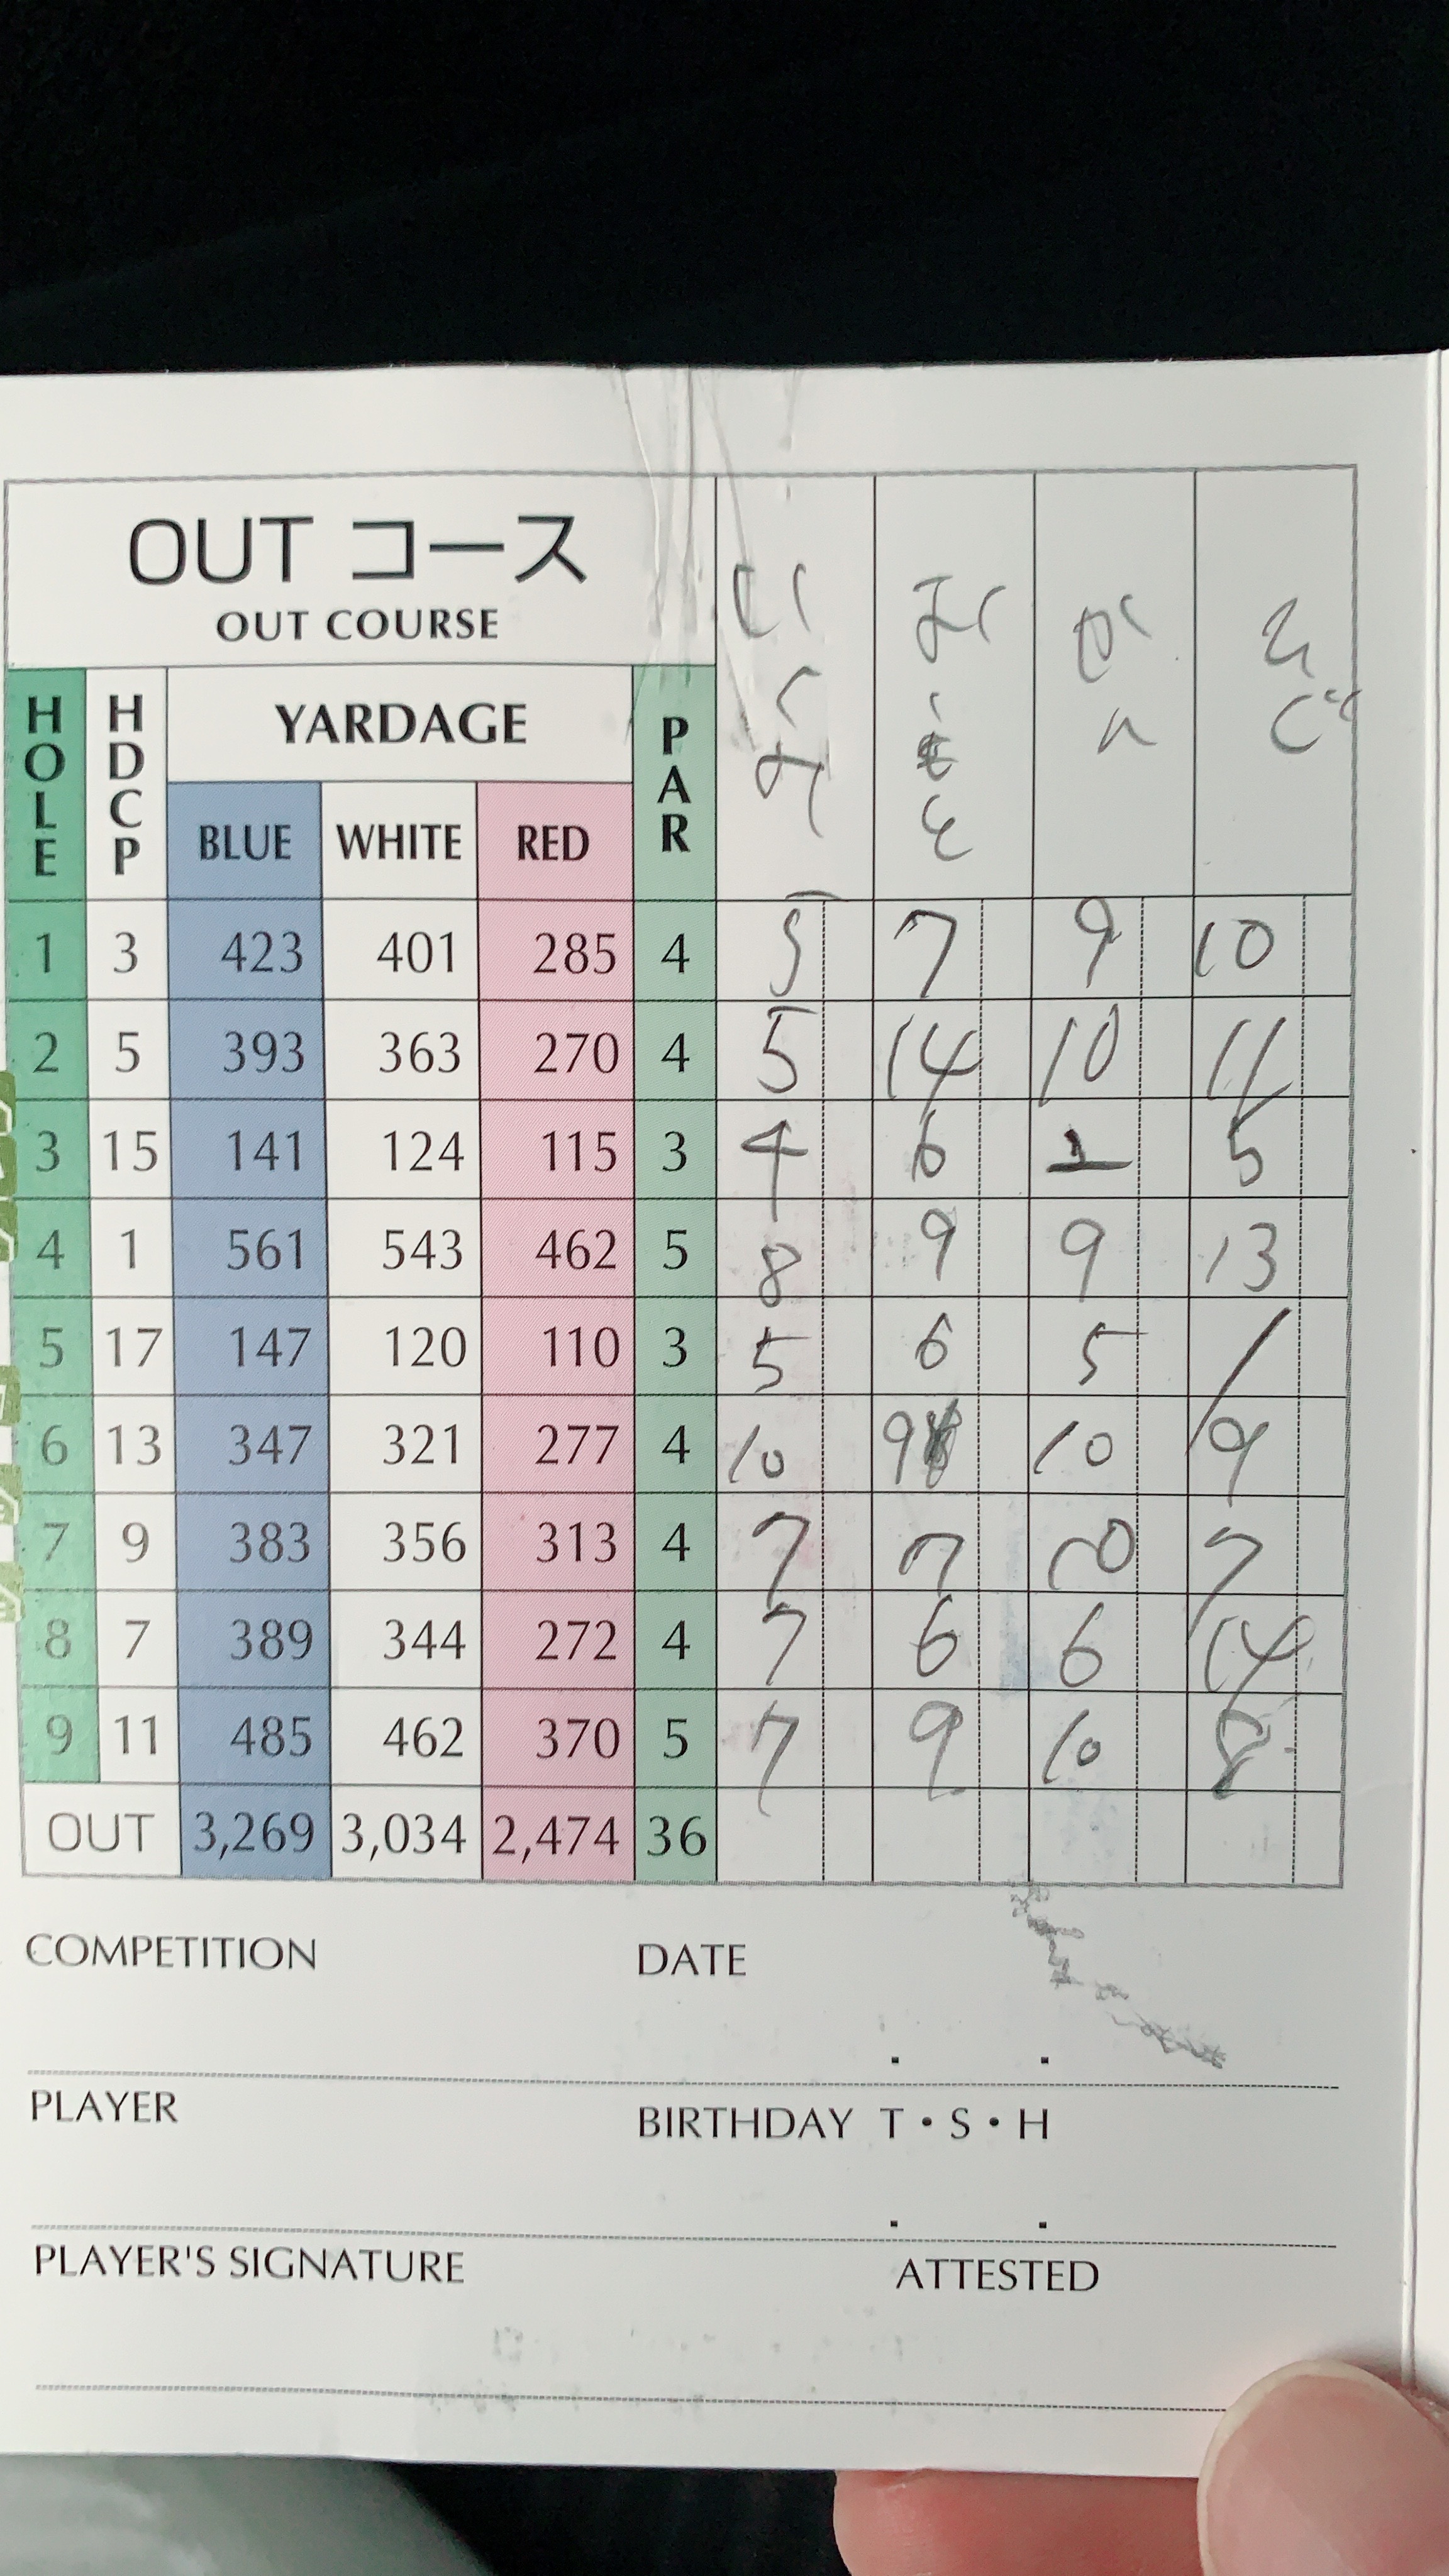 OUT コース
OUT COURSE
HOLE HDCP YARDAGE PAR
BLUE WHITE RED
1 3 423 401 285 4 5 7 9 10
2 5 393 363 270 4 5 14 10 11
3 15 141 124 115 3 4 6 5
4 1 561 543 462 5 8 9 9 13
5 17 147 120 110 3 5 6 5
6 13 347 321 277 4 10 9 10 9
7 9 383 356 313 4 7 7 10 7
8 7 389 344 272 4 7 6 6 14
9 11 485 462 370 5 7 9 10 8
OUT 3,269 3,034 2,474 36
COMPETITION DATE
PLAYER BIRTHDAY T・S・H
PLAYER'S SIGNATURE ATTESTED